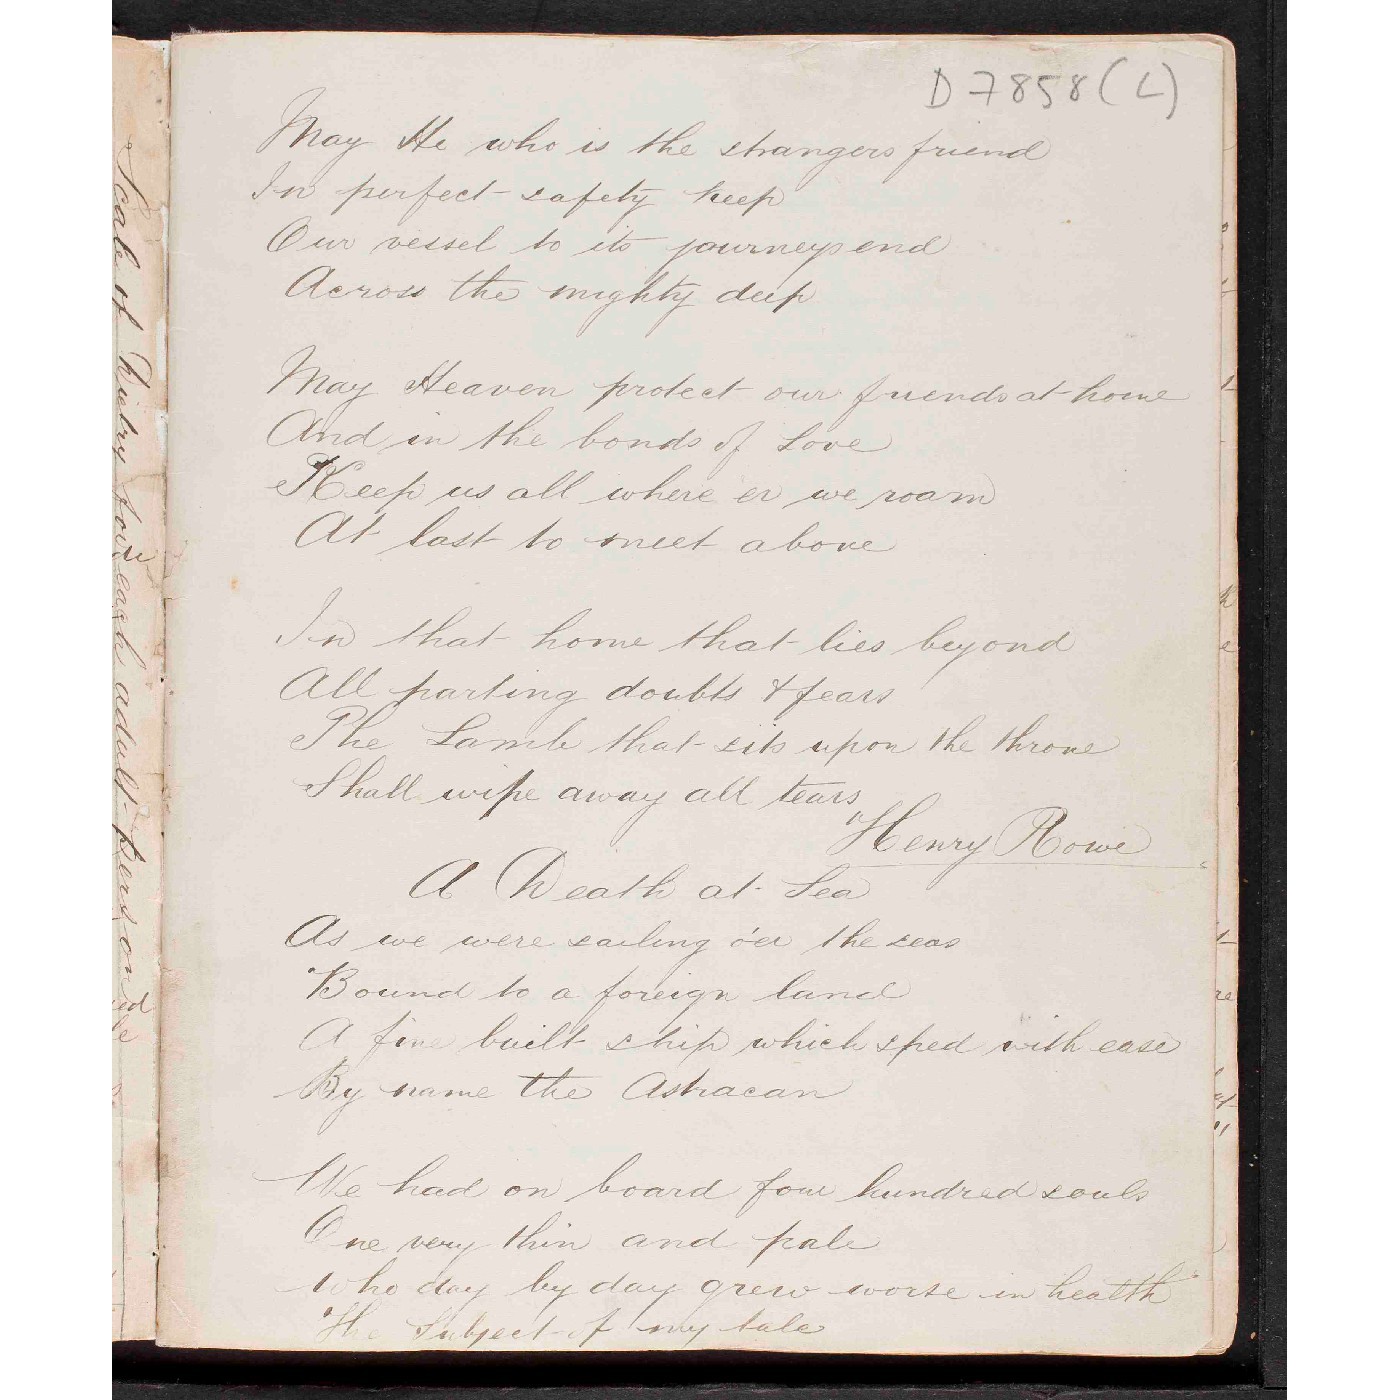 D 7858 (L)
May He who is the strangers friend
In perfect safety keep
Our vessel to its journeys end
Across the mighty deep
May Heaven protect our friends at home
And in the bonds of Love
Keep us all where er we roam
At last to meet above
In that home that lies beyond
All parting doubts & fears
The Lamb that sits upon the throne
Shall wipe away all tears
Henry Rowe
A Death at Sea
As we were sailing o'er the seas
Bound to a foreign land
A fine built ship which sped with ease
By name the Astracan
We had on board four hundred souls
One very thin and pale
Who day by day grew worse in health
The Subject of my tale
Scale of Dietry for each adult Person